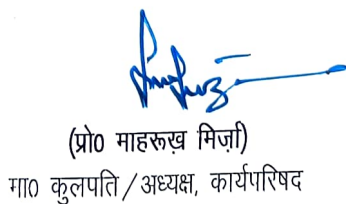 (प्रो० माहरूख़ मिर्ज़ा)
मा० कुलपति / अध्यक्ष, कार्यपरिषद